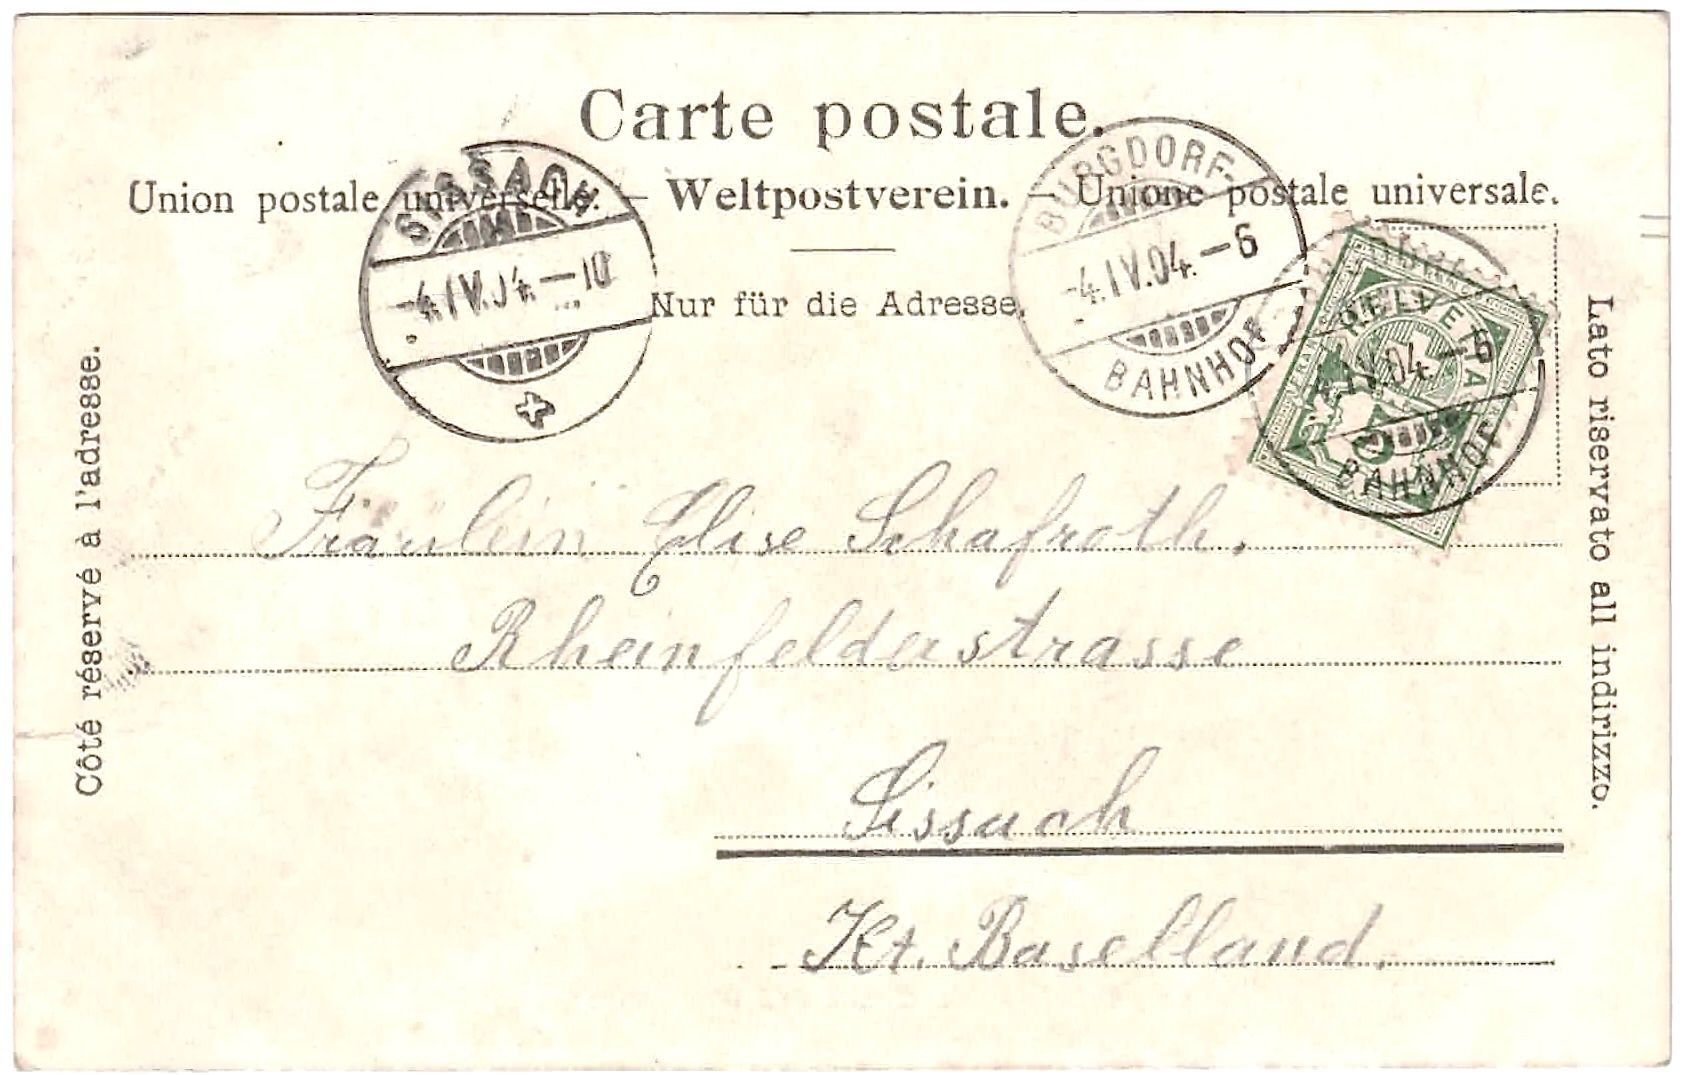 Carte postale.
Union postale universelle. — Weltpostverein. — Unione postale universale.
Nur für die Adresse.
SISSACH
-4.IV.04.-10
BURGDORF-
-4.IV.04.-6
BAHNHOF
HELVETIA
IV.04.-6
BAHNHOF
Côté réservé à l'adresse.
Lato riservato all indirizzo.
Fräulein Elise Schafroth.
Rheinfelderstrasse
Sissach
Kt. Baselland.